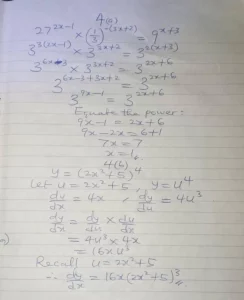 4(a)
27^{2x-1} × (1/3)^{-(3x+2)} = 9^{x+3}
3^{3(2x-1)} × 3^{3x+2} = 3^{2(x+3)}
3^{6x-3} × 3^{3x+2} = 3^{2x+6}
3^{6x-3+3x+2} = 3^{2x+6}
3^{9x-1} = 3^{2x+6}
Equate the power:
9x-1 = 2x+6
9x-2x = 6+1
7x = 7
x = 1
4(b)
y = (2x²+5)^4
Let u = 2x²+5, y = u^4
du/dx = 4x, dy/du = 4u³
dy/dx = dy/du × du/dx
= 4u³ × 4x
= 16xu³
Recall u = 2x²+5
∴ dy/dx = 16x(2x²+5)³